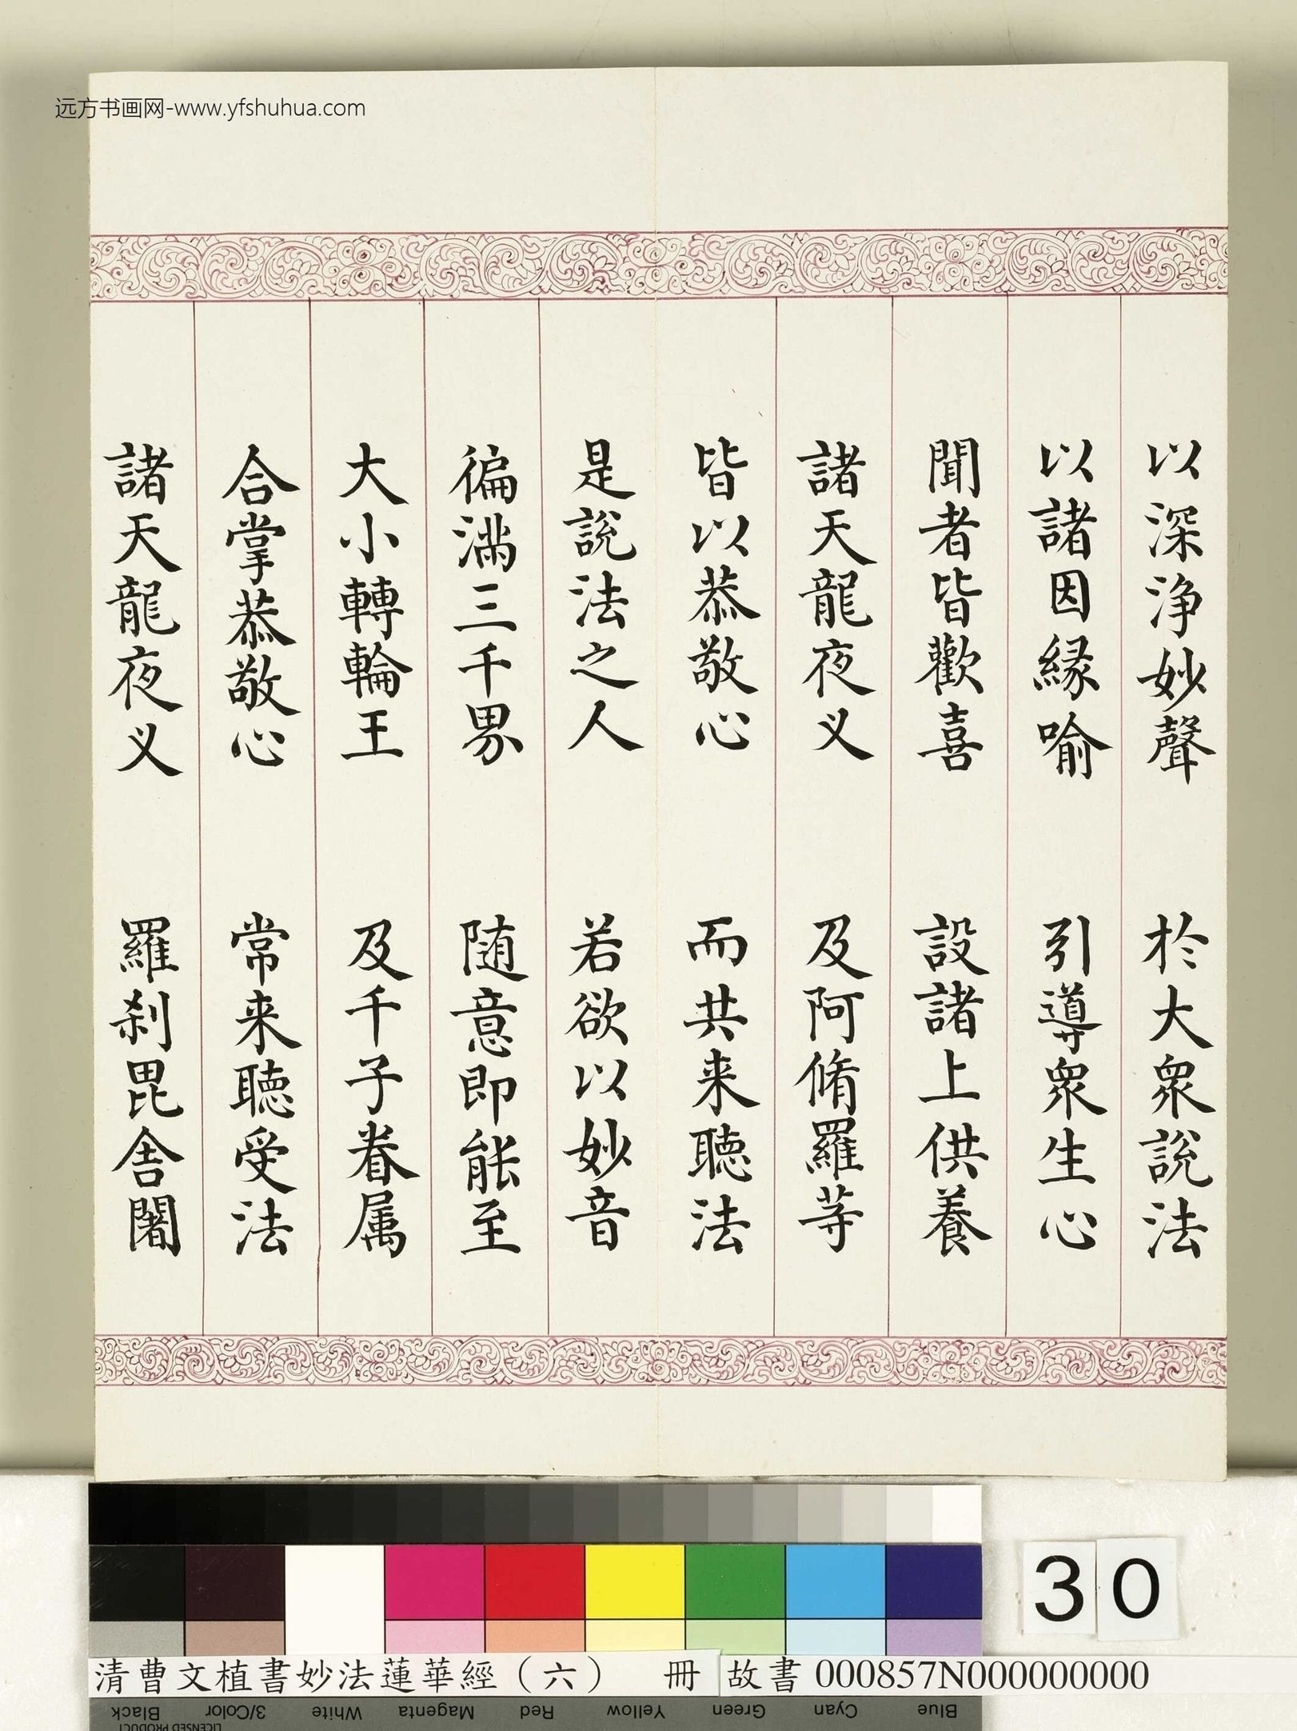 远方书画网-www.yfshuhua.com
以深浄妙聲 於大衆説法
以諸因縁喻 引導衆生心
聞者皆歡喜 設諸上供養
諸天龍夜义 及阿脩羅等
皆以恭敬心 而共来聽法
是説法之人 若欲以妙音
徧満三千界 随意即能至
大小轉輪王 及千子眷属
合掌恭敬心 常来聽受法
諸天龍夜义 羅刹毘舎闍
30
清曹文植書妙法蓮華經（六） 冊
故書 000857N000000000
Black 3/Color White Magenta Red Yellow Green Cyan Blue
LICENSED PRODUCT